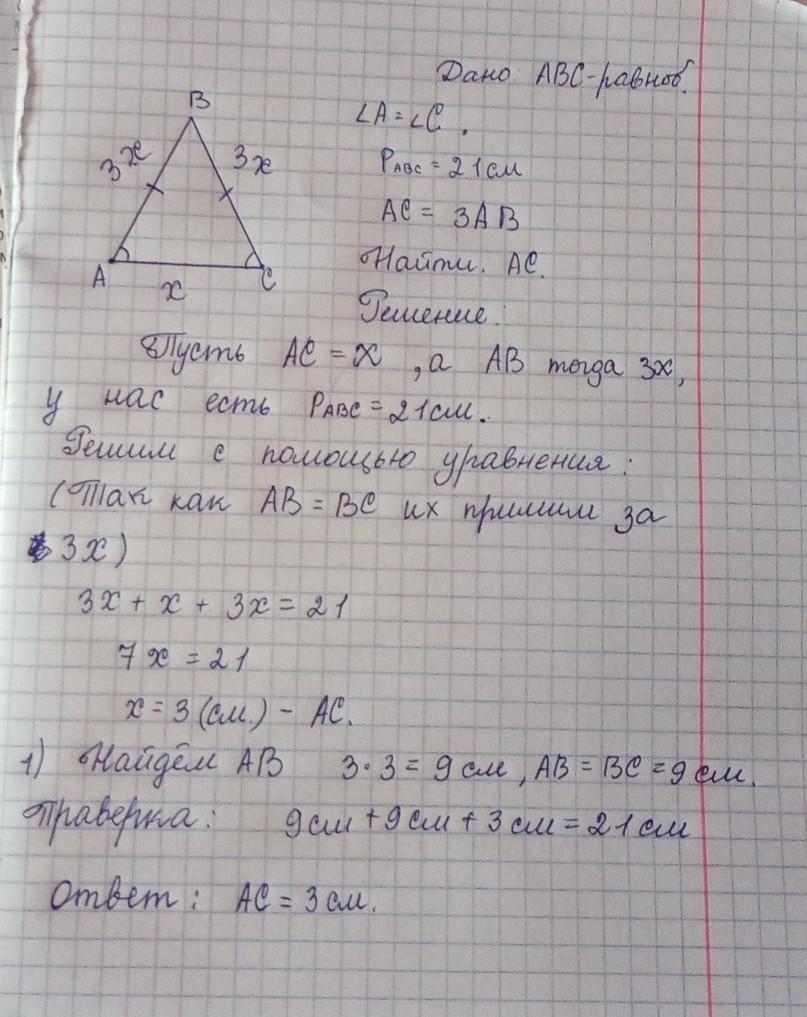 Дано: ABC-равноб.
B
∠A=∠C.
3x
3x
PABC = 21см
AC = 3AB
A
x
C
Найти. AC.
Решение:
Пусть AC = x, а AB тогда 3x,
у нас есть PABC = 21см.
Решим с помощью уравнения:
(Так как AB = BC их примим за
3x)
3x + x + 3x = 21
7x = 21
x = 3 (см.) - AC.
1) Найдём AB 3·3 = 9 см, AB = BC = 9 см.
Праверка: 9см + 9см + 3см = 21см
Ответ: AC = 3см.